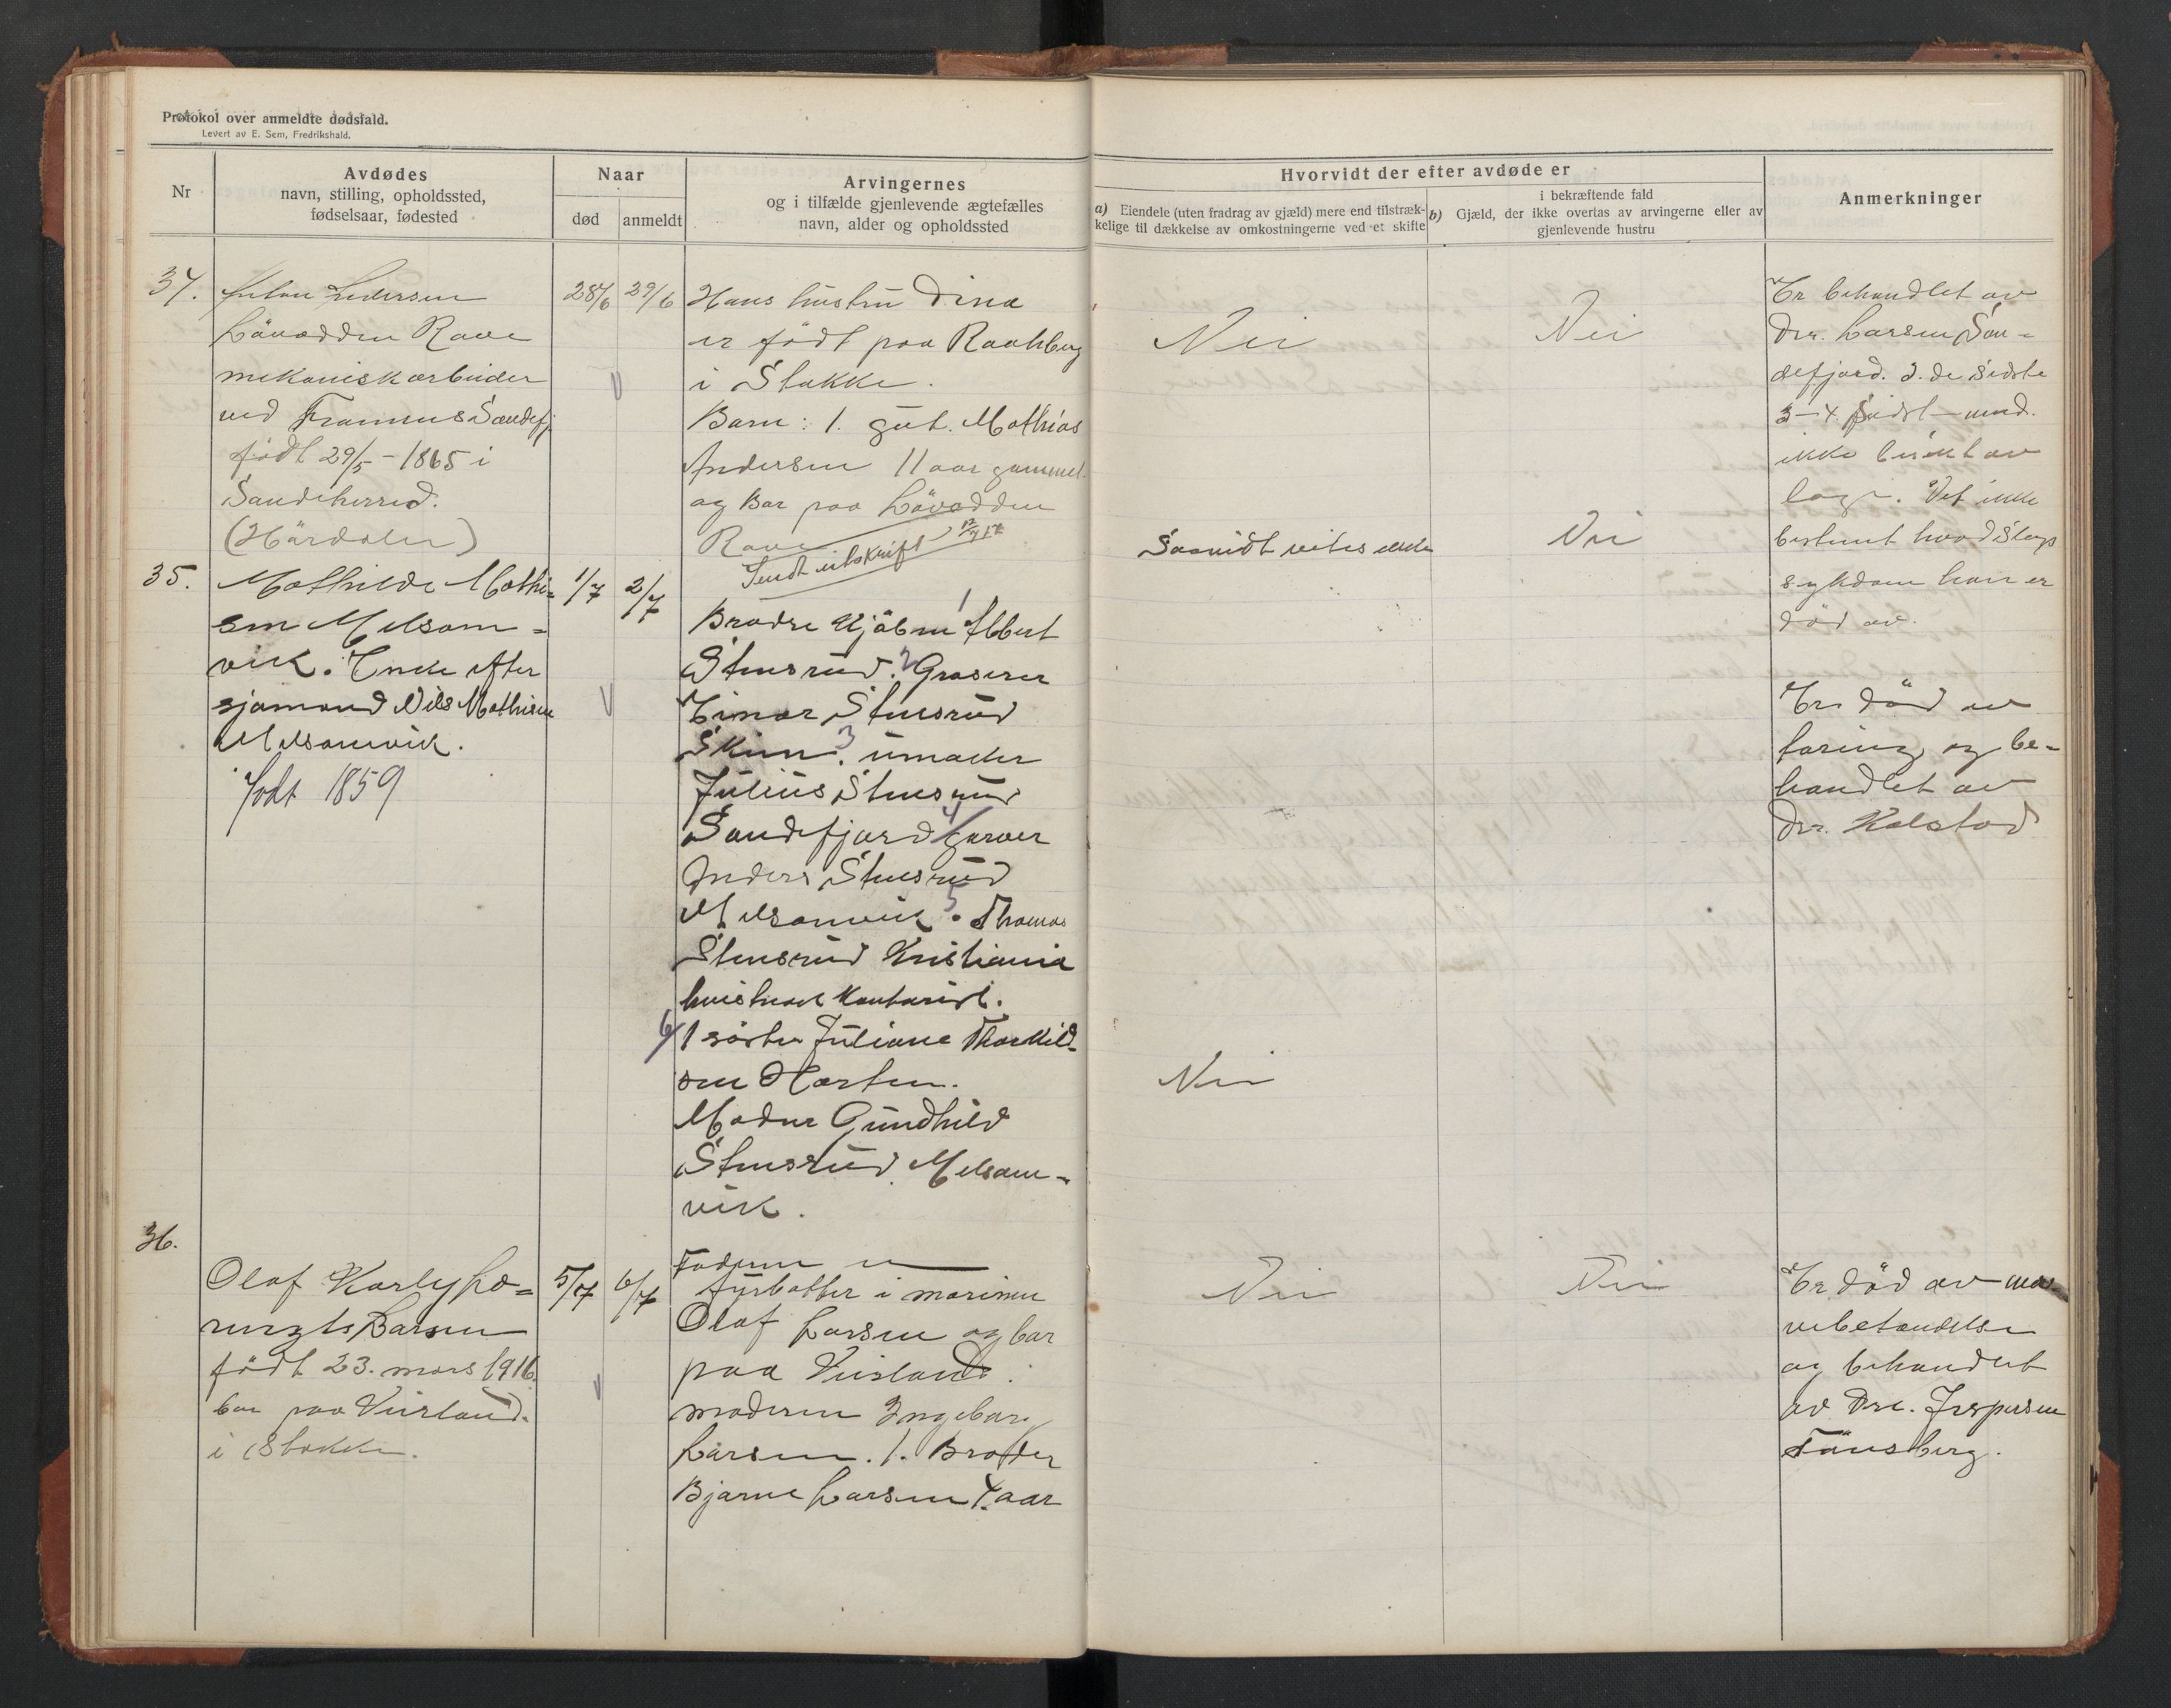 Protokol over anmeldte dødsfald.
Levert av E. Sem, Fredrikshald.
Nr
Avdødes
navn, stilling, opholdssted,
fødselsaar, fødested
Naar
død
anmeldt
Arvingernes
og i tilfælde gjenlevende ægtefælles
navn, alder og opholdssted
Hvorvidt der efter avdøde er
a) Eiendele (uten fradrag av gjæld) mere end tilstræk-
kelige til dækkelse av omkostningerne ved et skifte
b) Gjæld, der ikke overtas av arvingerne eller av
i bekræftende fald
gjenlevende hustru
Anmerkninger
34.
Lövodden Rove
mekaniskarbeider
ved Framnes Sandefj
född 29/5 - 1865 i
Sandeherred.
28/6
29/6
Hans hustru Dina
er född paa Raahberg
i Stokke.
Barn: 1. gut. Mathias
Andersen 11 aar gammel
og Bor paa Lövodden
Rove
Sendt utskrift
Nei
Nei
Er behandlet av
Dr. Larsen San-
defjord. I de sidste
3-4
ikke besökt av
læge. Vet ikke
bestemt hvad slags
sykdom han er
död av.
35.
Mathilde Mathi-
sen Melsom-
vik. Enke efter
sjömand Nils Mathisen
Melsomvik.
Född 1859
1/7
2/7
Brödre Kjöbm 1 Albert
Stensrud. 2 Groserer
Einar Stensrud
Skien. 3 urmaker
Julius Stensrud
Sandefjord 4 garver
Anders Stensrud
Melsomvik. 5 Thomas
Stensrud Kristiania
kontorist.
6 1 söster Juliane Thorkild-
sen Horten.
Moder Gundhild
Stensrud Melsom-
vik.
Saavidt vites ikke
Nei
Nei
Er död av
taring og be-
handlet av
Dr. Kolstad
36.
Olaf Karly Lo-
Larsen
född 23. mars 1916.
bor paa Virland
i Stokke.
5/7
6/7
Faderen er
fyrböter i marinen
Olaf Larsen og bor
paa Virland.
moderen Ingeborg
Larsen. 1. Broder
Bjarne Larsen 4 aar
Nei
Nei
Er död av ma-
vebetændelse
og behandlet
av Dr. Jespersen
Tönsberg.